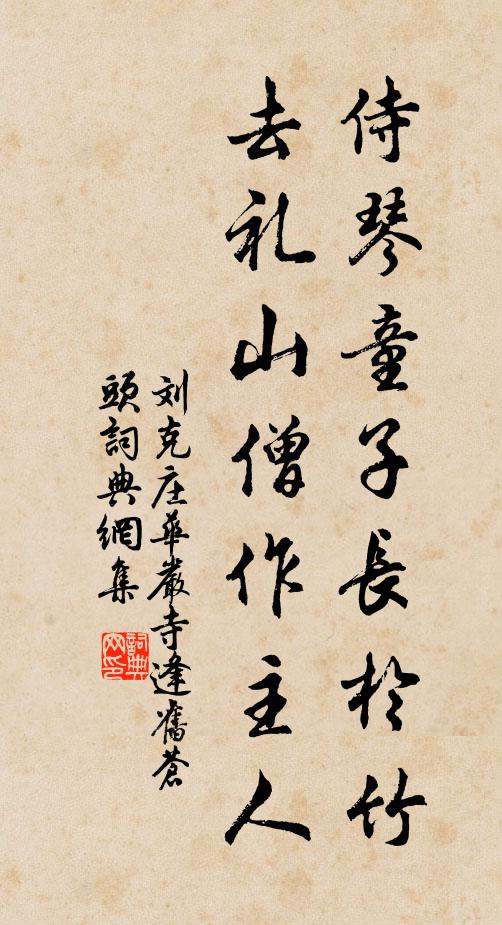 侍琴童子長於竹
去礼山僧作主人
刘克庄華嚴寺逢舊蒼
頭詞典網集
詞典网印